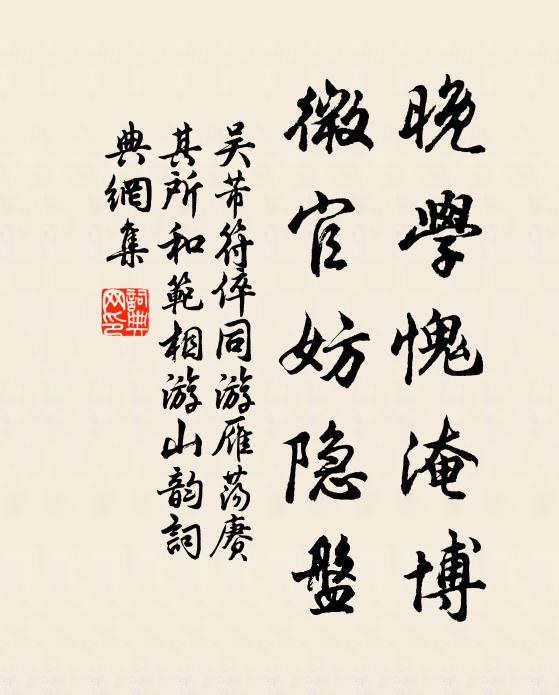 晚學愧淹博
微官妨隐盤
吴芾符倅同游雁荡赓
其所和範相游山韵詞
典網集
詞典網印